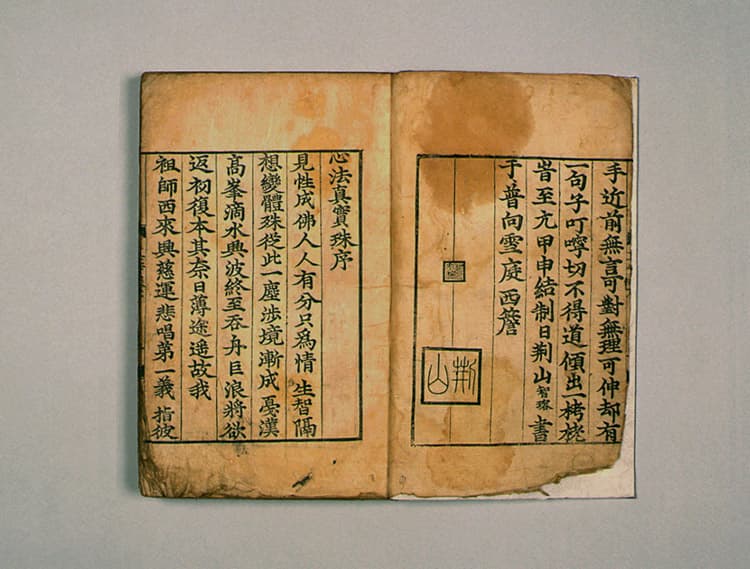 手近前無言可對無理可伸却有
一句子叮嚀切不得道傾出一栲栳
旹至元甲申結制日荆山智珞書
于普向雪庭西簷
荆山
心法真寶珠序
見性成佛人人有分只爲情生智隔
想變體殊從此一塵涉境漸成憂漢
高峯滴水興波終至吞舟巨浪將欲
返初復本其奈日薄途遥故我
祖師西來興慈運悲唱第一義指彼